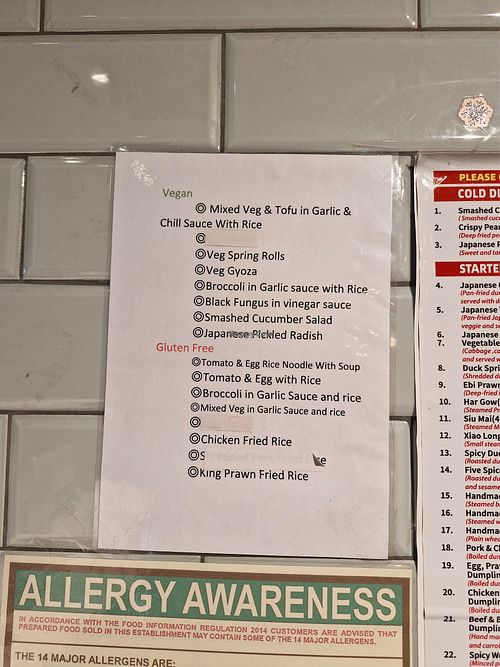 Vegan
◎ Mixed Veg & Tofu in Garlic &
Chill Sauce With Rice
◎
◎Veg Spring Rolls
◎Veg Gyoza
◎Broccoli in Garlic sauce with Rice
◎Black Fungus in vinegar sauce
◎Smashed Cucumber Salad
◎Japanese Pickled Radish
Gluten Free
◎Tomato & Egg Rice Noodle With Soup
◎Tomato & Egg with Rice
◎Broccoli in Garlic Sauce and rice
◎Mixed Veg in Garlic Sauce and rice
◎
◎Chicken Fried Rice
◎Shredded Pork Fried Rice
◎King Prawn Fried Rice
PLEASE
COLD DI
1. Smashed C
(Smashed cucu
2. Crispy Pear
(Deep fried pe
3. Japanese P
(Sweet and tan
STARTE
4. Japanese
(Pan-fried du
served with d
5. Japanese
(Pan-fried Jap
veggie and se
6. Japanese
7. Vegetable
(Cabbage ,ca
and served w
8. Duck Spri
(Shredded d
9. Ebi Prawn
(Deep-fried
10. Har Gow(
(Steamed Pr
11. Siu Mai(4
(Steamed M
12. Xiao Long
(Small steam
13. Spicy Duc
(Roasted du
14. Five Spic
(Roasted du
and sesame
15. Handmad
(Steamed b
16. Handmad
(Steamed w
17. Handmad
(Plain whea
18. Pork & C
(Boiled dun
19. Egg, Pra
Dumplin
(Boiled du
20. Chicken
Dumplin
(Boiled du
21. Beef & E
Dumplin
(Hand mad
and carrot
22. Spicy W
(Minced p
ALLERGY AWARENESS
IN ACCORDANCE WITH THE FOOD INFORMATION REGULATION 2014 CUSTOMERS ARE ADVISED THAT
PREPARED FOOD SOLD IN THIS ESTABLISHMENT MAY CONTAIN SOME OF THE 14 MAJOR ALLERGENS.
THE 14 MAJOR ALLERGENS ARE: